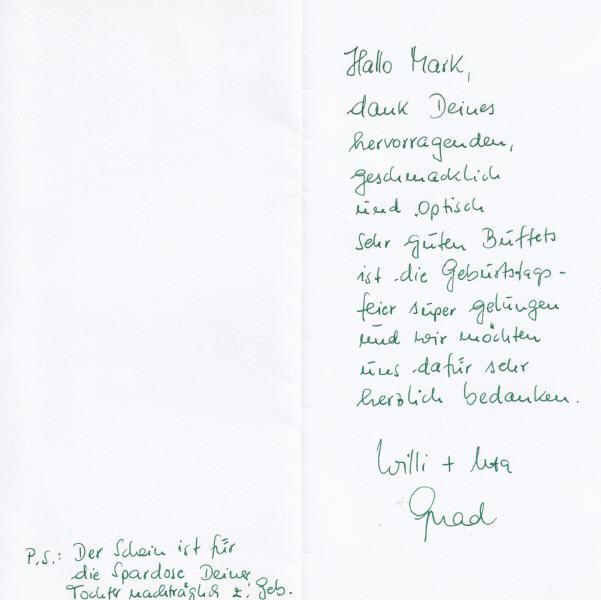 Hallo Mark,
dank Deines
hervorragenden,
geschmacklich
und optisch
sehr guten Buffets
ist die Geburtstags-
feier super gelungen
und wir möchten
uns dafür sehr
herzlich bedanken.
Willi + Uta
P.S.: Der Schein ist für
die Spardose Deiner
Tochter nachträglich z. Geb.